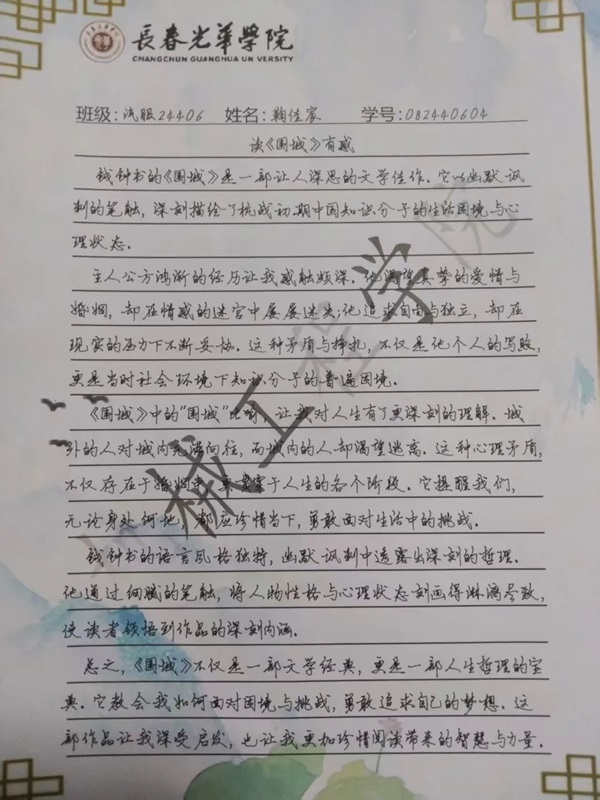 長春光華學院
CHANGCHUN GUANGHUA UN VERSITY
班级：汽服24406 姓名：鞠佳宸 学号：082440604
读《围城》有感
钱钟书的《围城》是一部让人深思的文学佳作。它以幽默讽
刺的笔触，深刻描绘了抗战初期中国知识分子的生活困境与心
理状态。
主人公方鸿渐的经历让我感触颇深。他渴望真挚的爱情与
婚姻，却在情感的迷宫中屡屡迷失；他追求自由与独立，却在
现实的压力下不断妥协。这种矛盾与挣扎，不仅是他个人的写照，
更是当时社会环境下知识分子的普遍困境。
《围城》中的“围城”比喻，让我对人生有了更深刻的理解。城
外的人对城内充满向往，而城内的人却渴望逃离。这种心理矛盾，
不仅存在于婚姻中，更贯穿于人生的各个阶段。它提醒我们，
无论身处何地，都应珍惜当下，勇敢面对生活中的挑战。
钱钟书的语言风格独特，幽默讽刺中透露出深刻的哲理。
他通过细腻的笔触，将人物性格与心理状态刻画得淋漓尽致，
使读者领悟到作品的深刻内涵。
总之，《围城》不仅是一部文学经典，更是一部人生哲理的宝
典。它教会我如何面对困境与挑战，勇敢追求自己的梦想。这
部作品让我深受启发，也让我更加珍惜阅读带来的智慧与力量。
机械工程学院